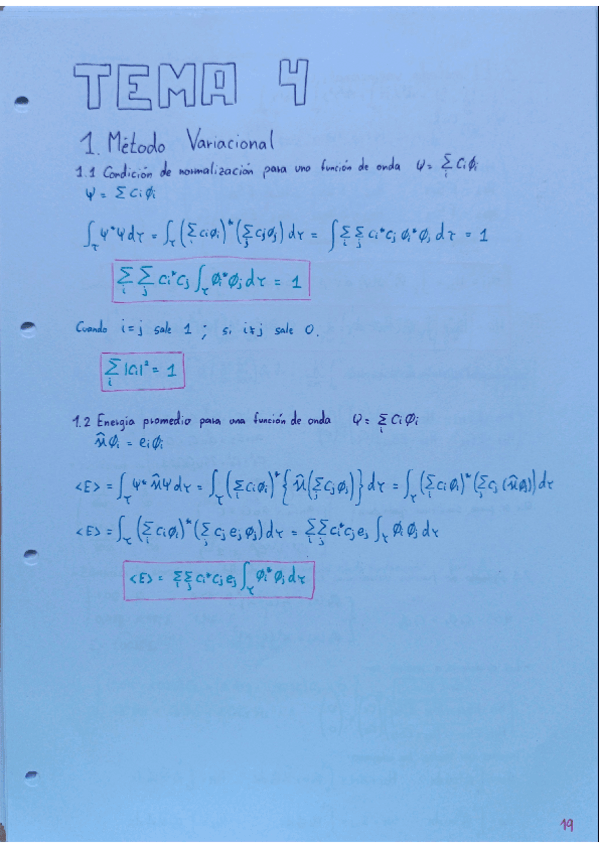 TEMA 4
1. Método Variacional
1.1 Condición de normalización para una función de onda Ψ = Σ_i Ci ϕi
Ψ = Σ Ci ϕi
∫_τ Ψ*Ψ dτ = ∫_τ (Σ_i Ci ϕi)* (Σ_j Cj ϕj) dτ = ∫ Σ_i Σ_j Ci* Cj ϕi* ϕj dτ = 1
Σ_i Σ_j Ci* Cj ∫_τ ϕi* ϕj dτ = 1
Cuando i=j sale 1 ; si i≠j sale 0.
Σ_i |Ci|² = 1
1.2 Energía promedio para una función de onda Ψ = Σ_i Ci ϕi
Ĥ ϕi = ei ϕi
<E> = ∫_τ Ψ* Ĥ Ψ dτ = ∫_τ (Σ_i Ci ϕi)* {Ĥ (Σ_j Cj ϕj)} dτ = ∫_τ (Σ_i Ci ϕi)* (Σ_j Cj (Ĥ ϕj)) dτ
<E> = ∫_τ (Σ_i Ci ϕi)* (Σ_j Cj ej ϕj) dτ = Σ_i Σ_j Ci* Cj ej ∫_τ ϕi ϕj dτ
<E> = Σ_i Σ_j Ci* Cj ej ∫_τ ϕi* ϕj dτ
19